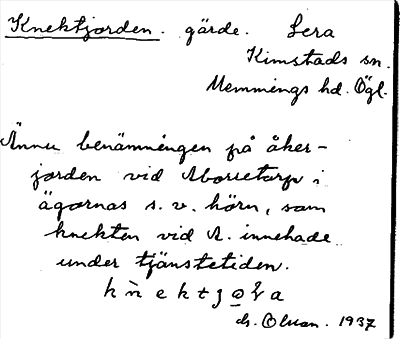 Knektjorden. gärde. Lera
Kimstads sn.
Memmings hd. Ögl.
Ännu benämningen på åker-
jorden vid Aborretorp i
ägornas s. v. hörn, som
knekten vid A. innehade
under tjänstetiden.
k n e k t
ds. Olsson. 1937